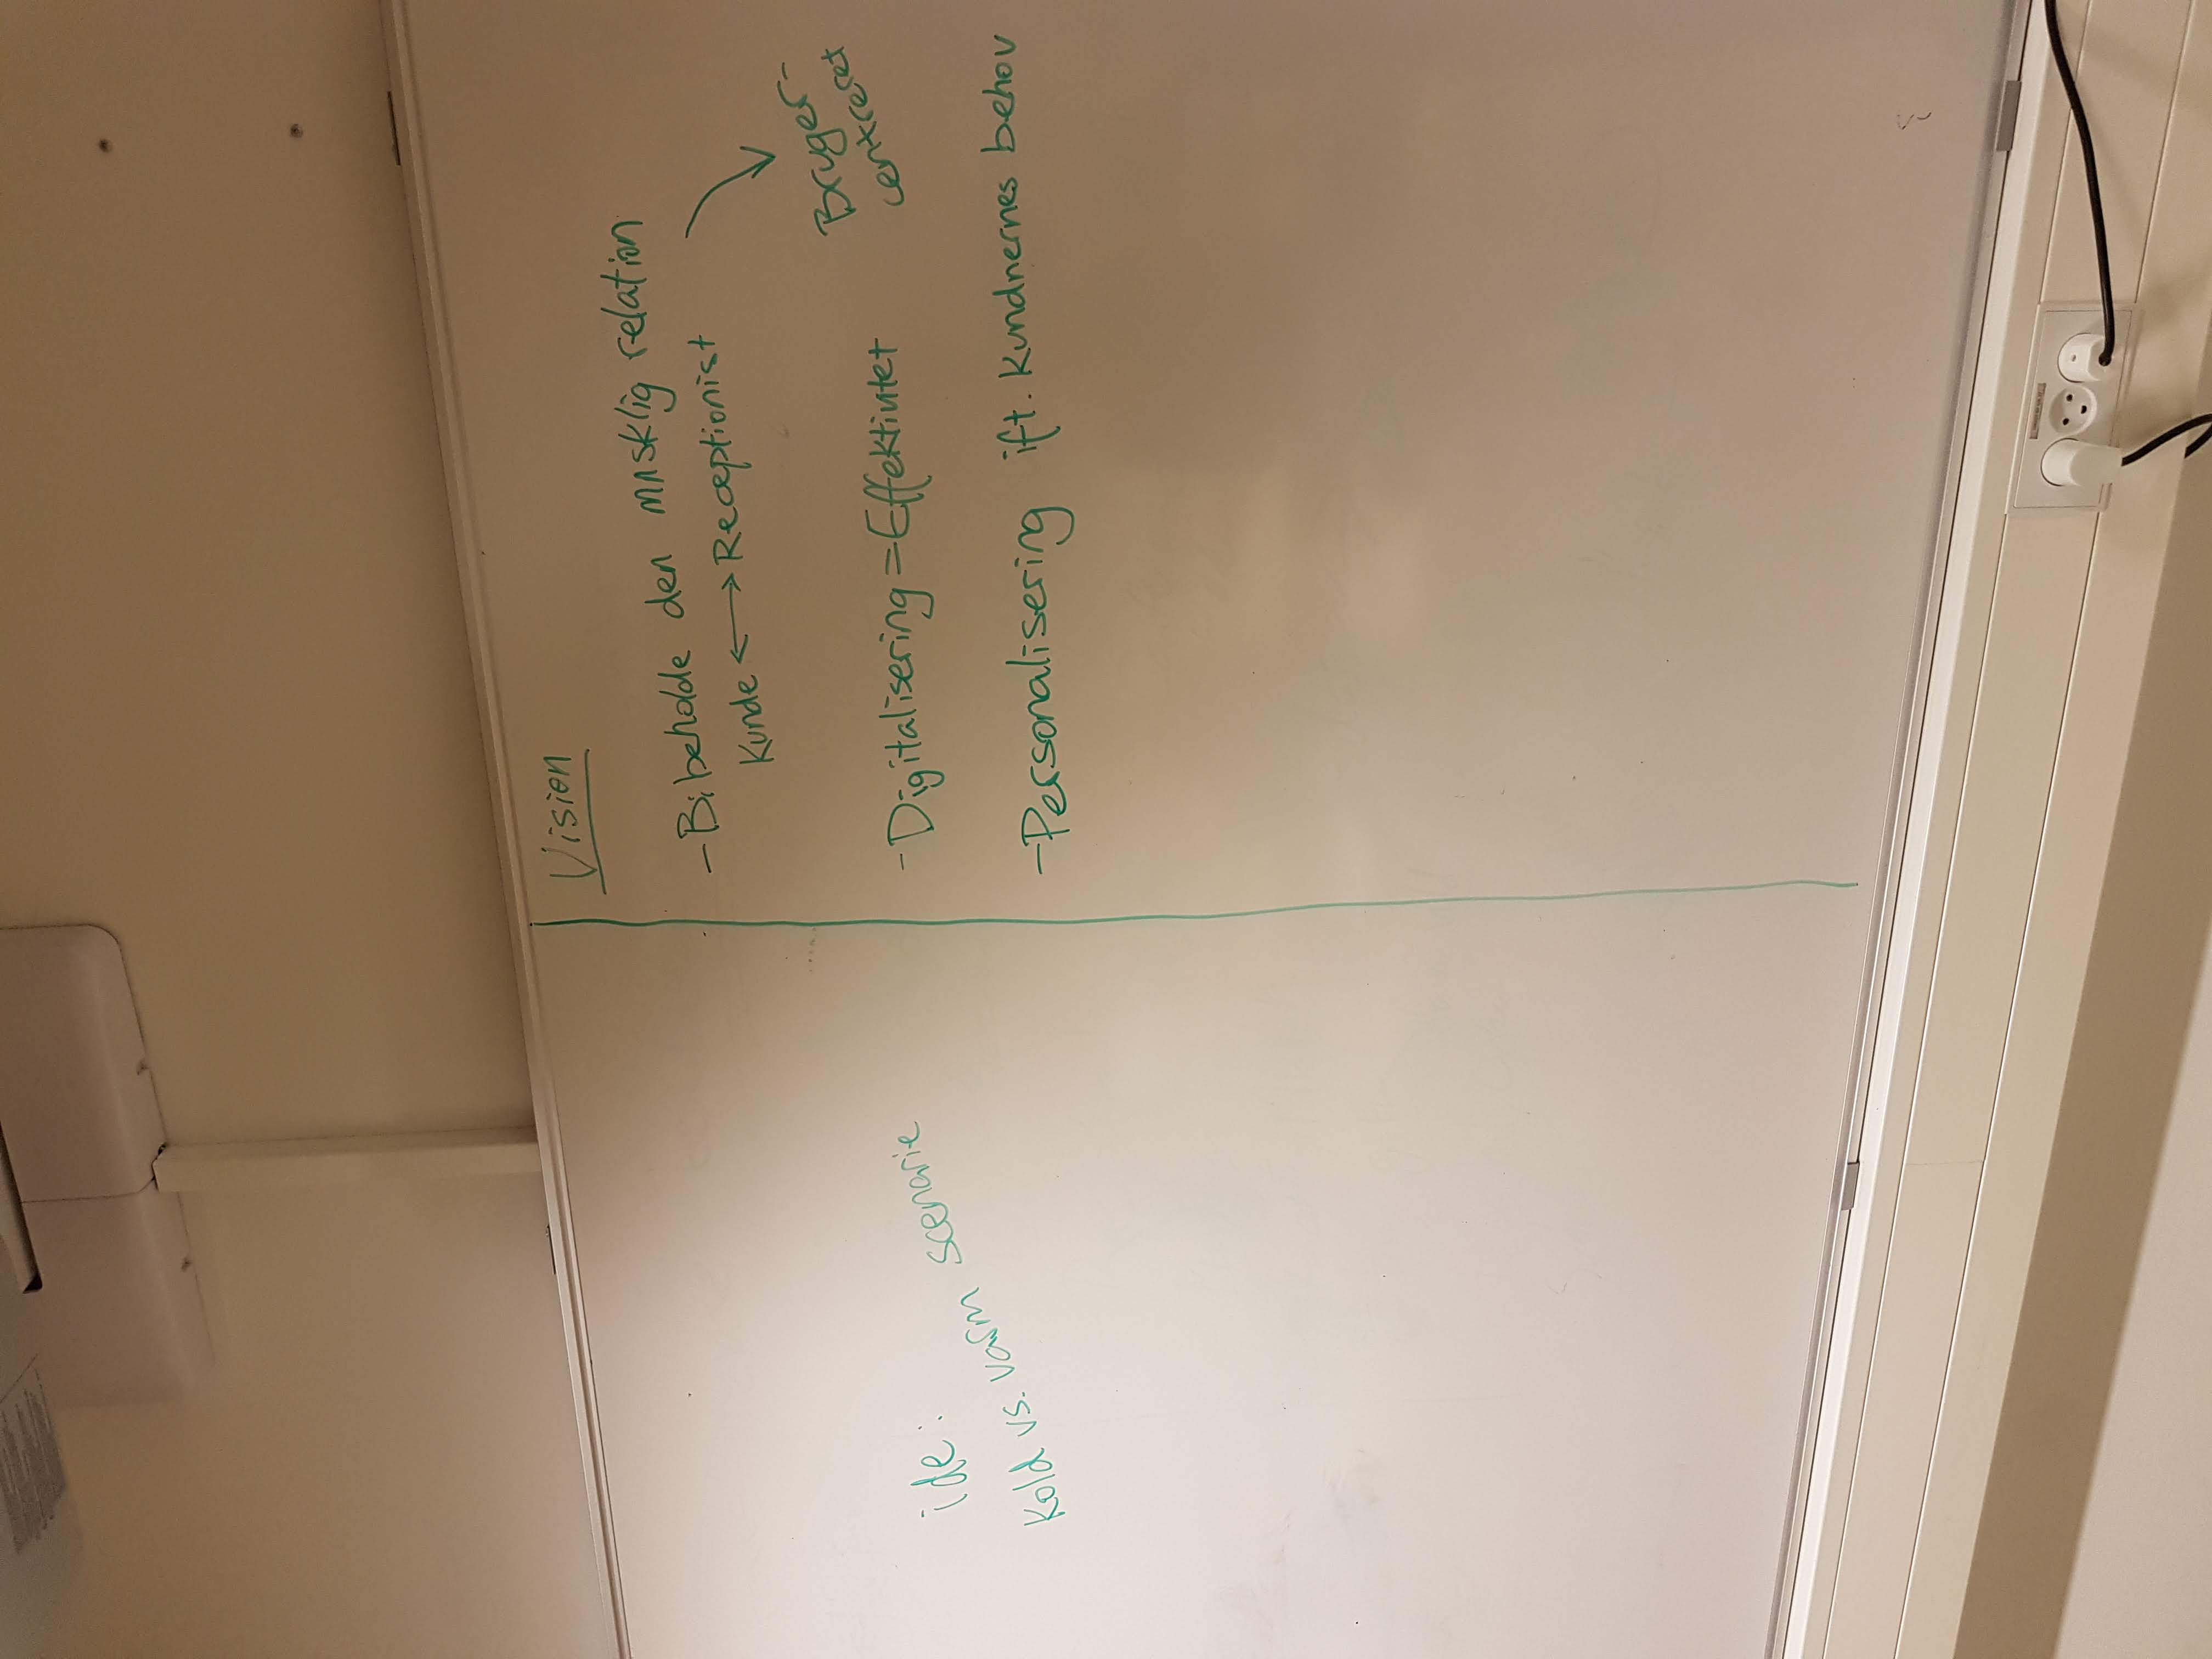 ide:
Kold vs. varm scenarie
Vision
- Bibeholde den mnsklig relation
Kunde <-> Receptionist
Bruger-
centreret
- Digitalisering = Effektivitet
- Personalisering ift. Kundnernes behov